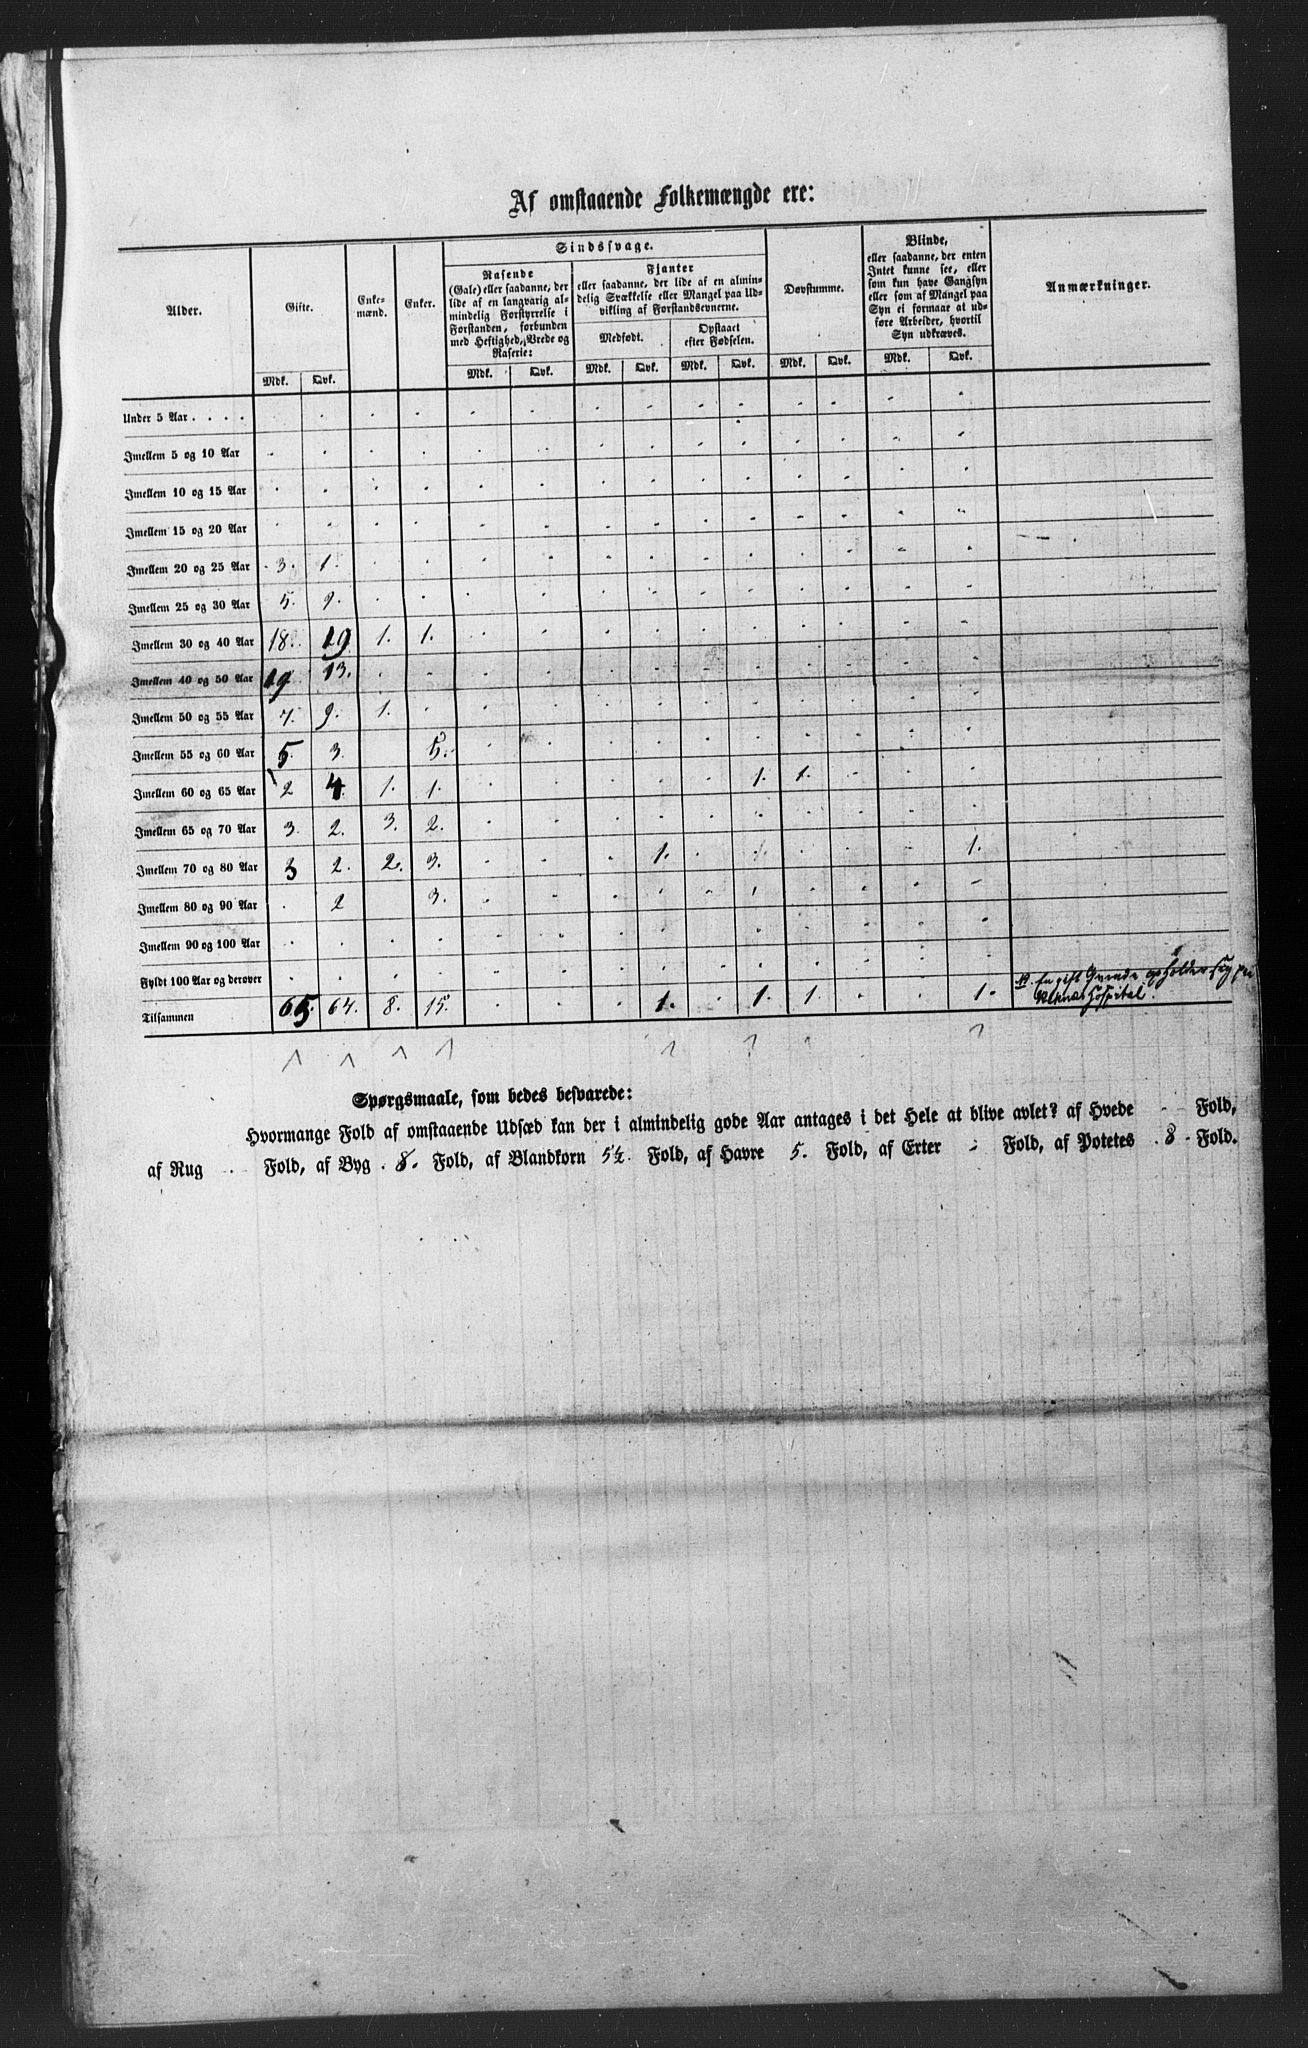 Af omstaaende Folkemængde ere:
Alder. Gifte. Enke-mænd. Enker. Sindssvage. Døvstumme. Blinde, Anmærkninger.
Rasende
(Gale) eller saadanne, der
lide af en langvarig al-
mindelig Forstyrrelse i
Forstanden, forbunden
med Heftighed, Vrede og
Raserie:
Fjanter
eller saadanne, der lide af en almin-
delig Svækkelse eller Mangel paa Ud-
vikling af Forstandsevnerne.
Medfødt. Opstaaet
efter Fødselen.
eller saadanne, der enten
Intet kunne see, eller
som kun have Gangsyn
eller som af Mangel paa
Syn ei formaae at ud-
føre Arbeider, hvortil
Syn udkræves.
Mdk. Qvk. Mdk. Qvk. Mdk. Qvk. Mdk. Qvk. Mdk. Qvk. Mdk. Qvk.
Under 5 Aar . . . .
Imellem 5 og 10 Aar
Imellem 10 og 15 Aar
Imellem 15 og 20 Aar
Imellem 20 og 25 Aar 3. 1.
Imellem 25 og 30 Aar 5. 9.
Imellem 30 og 40 Aar 18. 19 1. 1.
Imellem 40 og 50 Aar 19 13.
Imellem 50 og 55 Aar 7. 9. 1.
Imellem 55 og 60 Aar 5. 3. 5.
Imellem 60 og 65 Aar 2 4. 1. 1. 1. 1.
Imellem 65 og 70 Aar 3. 2. 3. 2.
Imellem 70 og 80 Aar 3 2. 2. 3. 1. 1.
Imellem 80 og 90 Aar 2 3.
Imellem 90 og 100 Aar
Fyldt 100 Aar og derover
Tilsammen 65. 64. 8. 15. 1. 1. 1. 1. En gift Qvinde opholder sig paa
Hospital.
Spørgsmaale, som bedes besvarede:
Hvormange Fold af omstaaende Udsæd kan der i almindelig gode Aar antages i det Hele at blive avlet? af Hvede - Fold,
af Rug - Fold, af Byg 8. Fold, af Blandkorn 5½ Fold, af Havre 5. Fold, af Erter - Fold, af Potetes 8 - Fold.